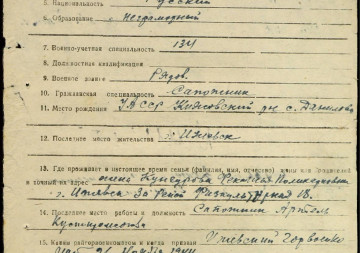 5. Национальность Русский
6. Образование неграмотный
7. Военно-учетная специальность 134
8. Должностная квалификация
9. Военное звание Рядов.
10. Гражданская специальность Сапожник
11. Место рождения УАССР Киясовский рн с. Данилово
12. Последнее место жительства г. Ижевск
13. Где проживает в настоящее время семья (фамилия, имя, отчество) жены или родителей
и точный их адрес жена Поликарповна
г. Ижевск Физкультурная 18.
14. Последнее место работы и должность Сапожник Артель
15. Каким райгорвоенкоматом и когда призван Ижевский Горвоенко